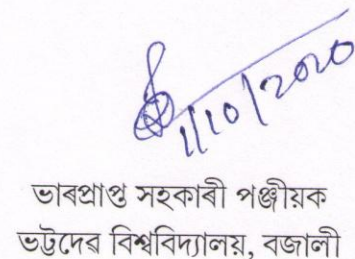 1/10/2020
ভাৰপ্রাপ্ত সহকাৰী পঞ্জীয়ক
ভট্টদেৱ বিশ্ববিদ্যালয়, বজালী